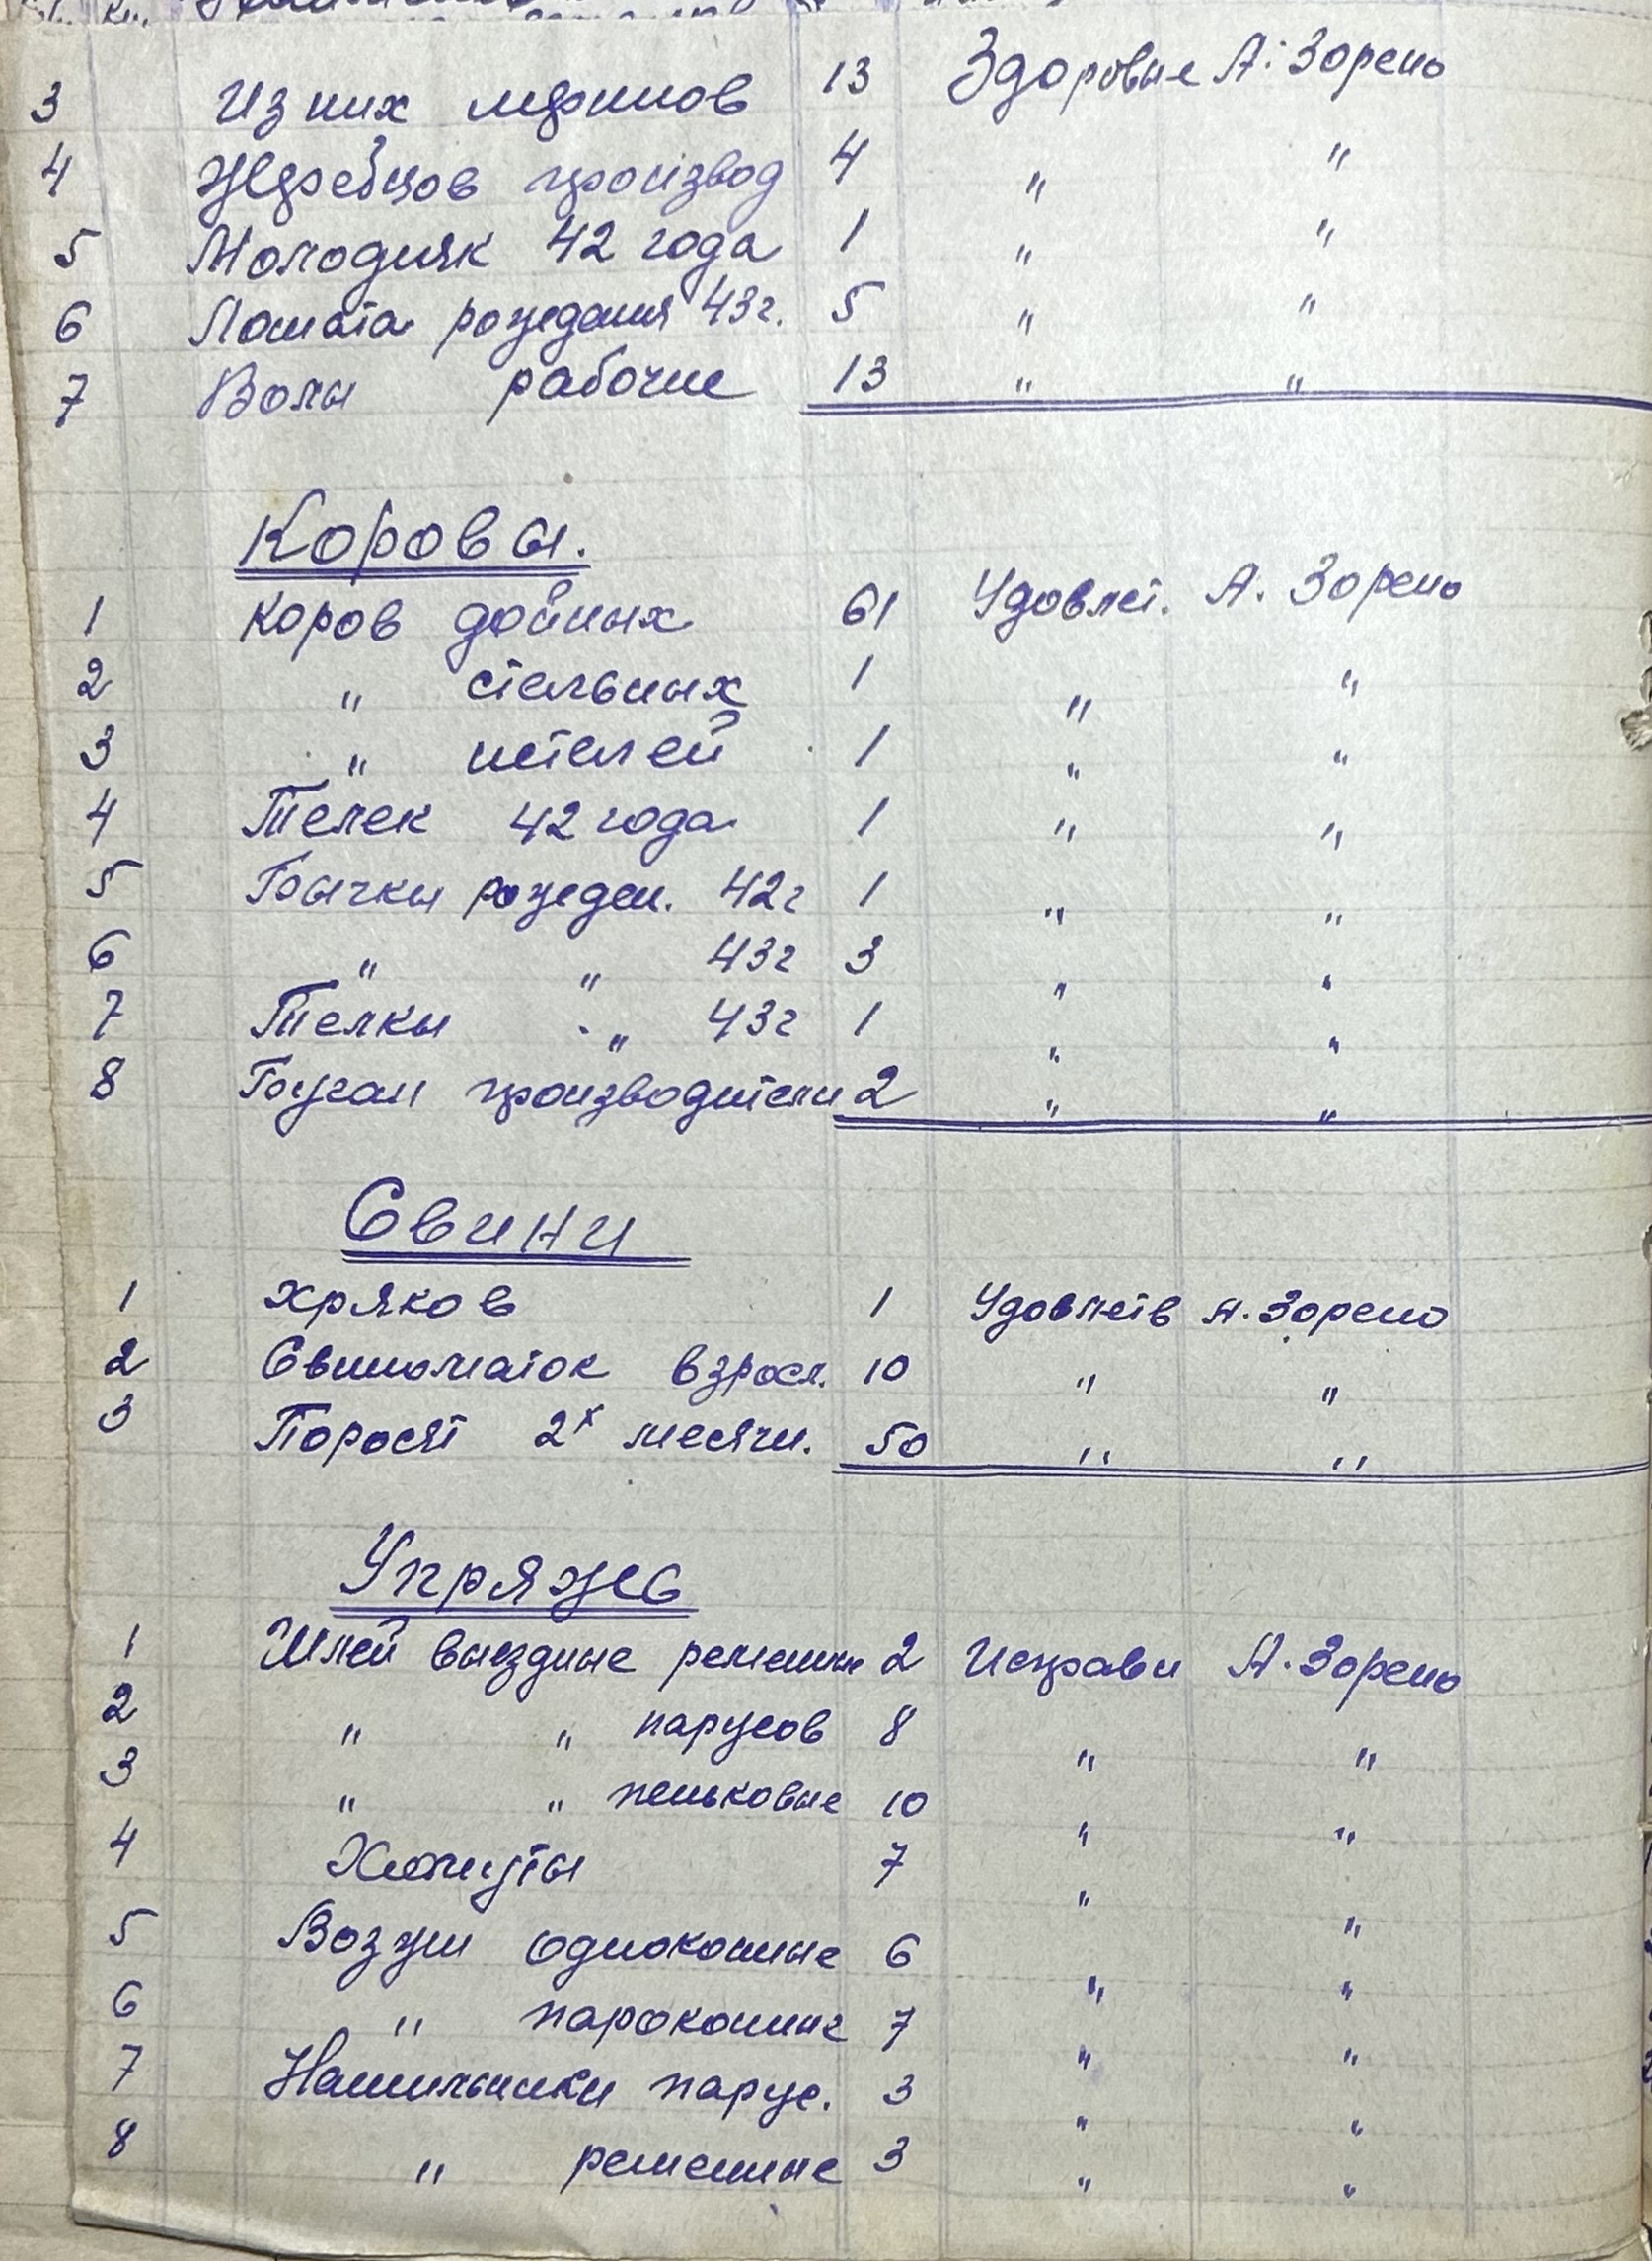 3 Из них меринов 13 Здоровые А. Зорено
4 Жеребцов производ 4 " "
5 Молодняк 42 года 1 " "
6 Лошата рождения 43г. 5 " "
7 Волы рабочие 13 " "
Коровы.
1 Коров дойных 61 Удовлет. А. Зорено
2 " стельных 1 " "
3 " нетелей 1 " "
4 Телек 42 года 1 " "
5 Бычки рожден. 42г 1 " "
6 " " 43г 3 " "
7 Телки " 43г 1 " "
8 Бугаи производители 2 " "
Свини
1 Хряков 1 Удовлетв А. Зорено
2 Свиноматок взросл. 10 " "
3 Поросят 2х месячн. 50 " "
Упряжь
1 Шлей выездные ременные 2 Исправн А. Зорено
2 " " парусов 8 " "
3 " " пеньковые 10 " "
4 Хомуты 7 " "
5 Возжи одноконные 6 " "
6 " пароконные 7 " "
7 Нашильники парус. 3 " "
8 " ременные 3 " "